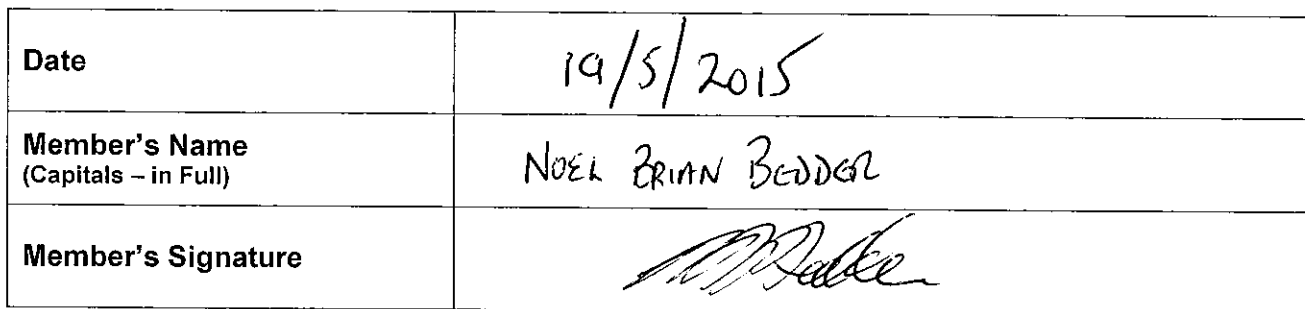 Date 19/5/2015
Member's Name
(Capitals – in Full) NOEL BRIAN BEDDER
Member's Signature